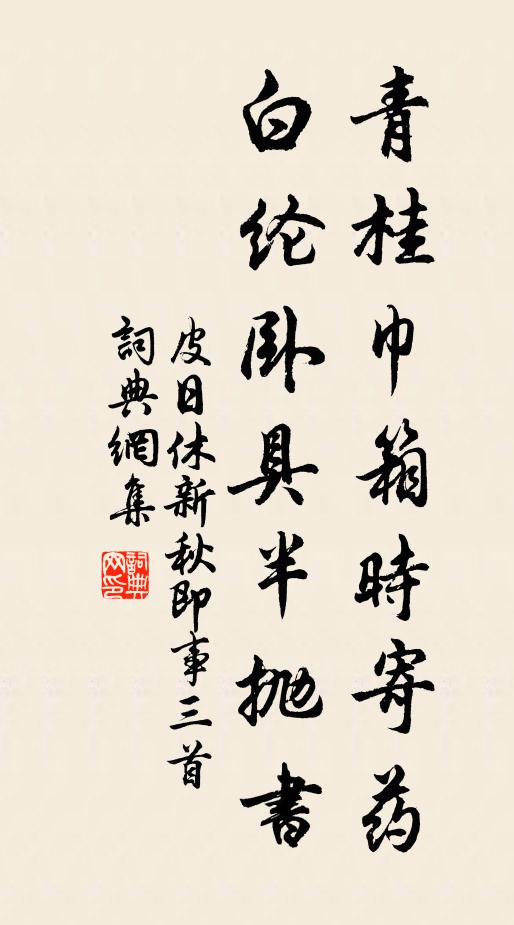 青桂巾箱時寄药
白纶卧具半抛書
皮日休新秋即事三首
詞典網集
詞典
网印